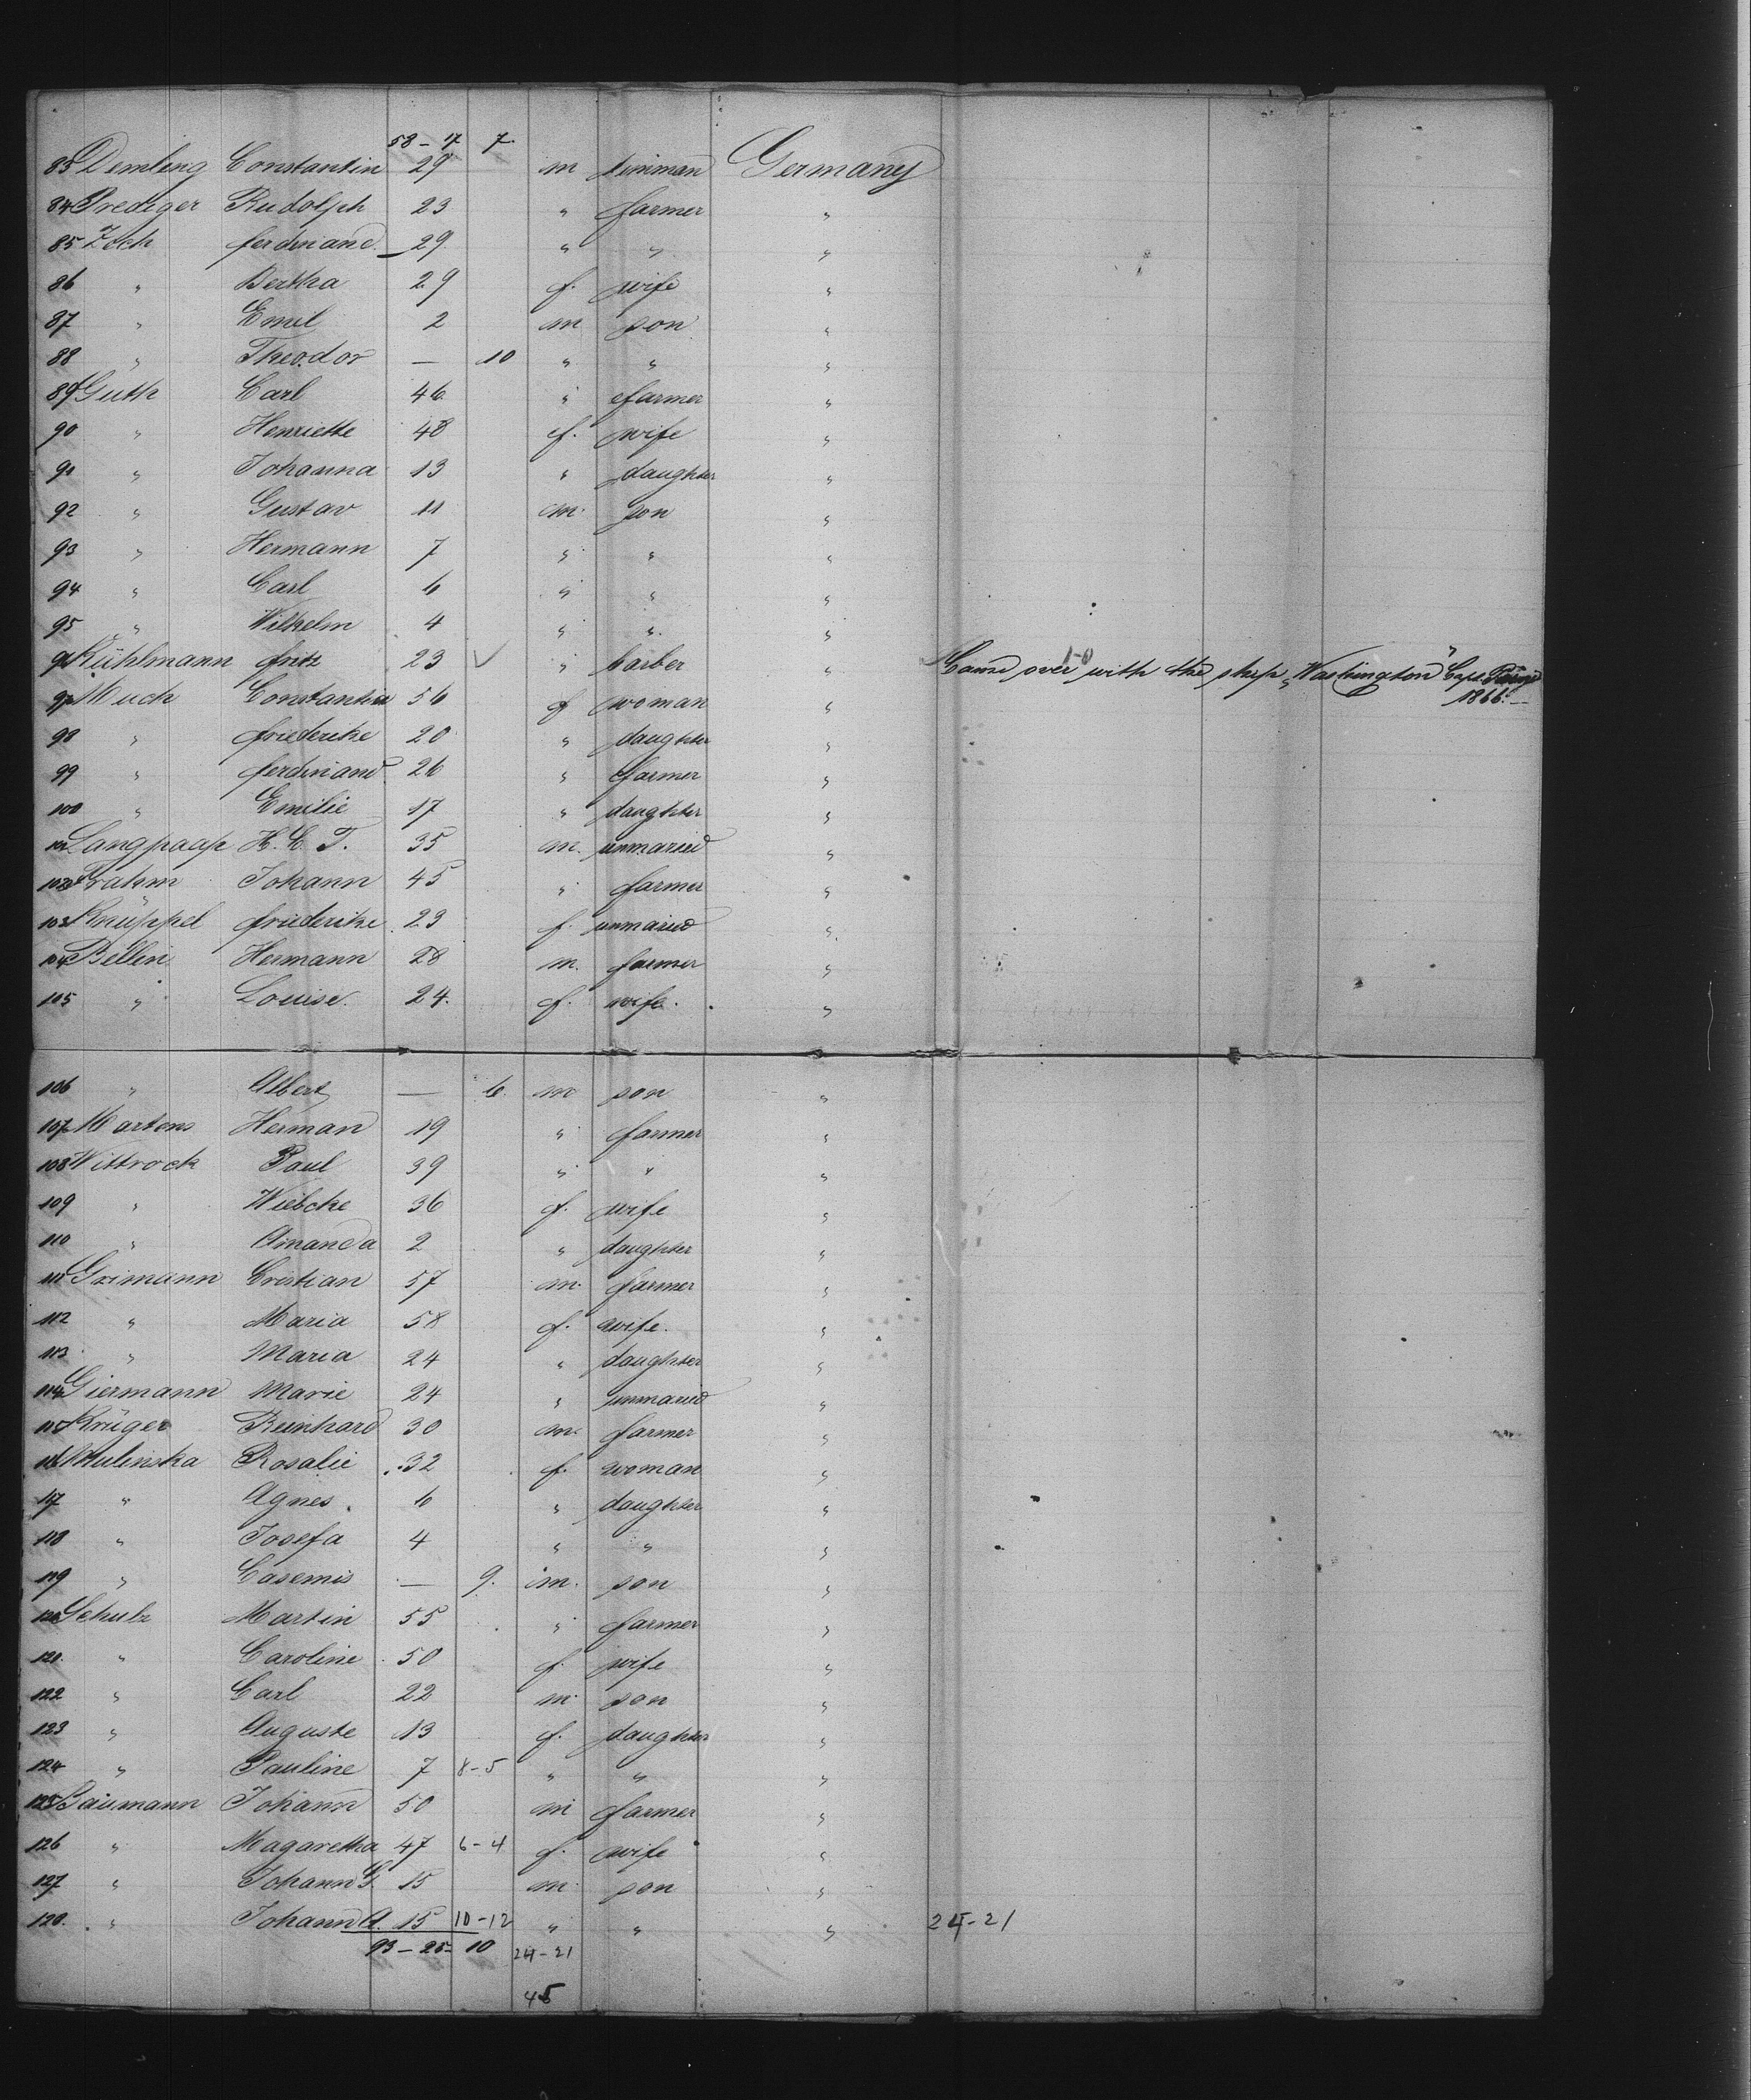 58 - 17 7.
83 Demling Constantin 29 m tinman Germany
84 Prediger Rudolph 23 " farmer "
85 Zoch ferdinand 29 " " "
86 " Bertha 29 f. wife "
87 " Emil 2 m son "
88 " Theodor — 10 " " "
89 Guth Carl 46 " farmer "
90 " Henriette 48 f. wife "
91 " Johanna 13 " daughter "
92 " Gustav 11 m. son "
93 " Hermann 7 " " "
94 " Carl 6 " " "
95 " Wilhelm 4 " " "
96 Kühlmann fritz 23 " barber " Came over with the ship „Washington" Capt.
1866. —
97 Much Constantia 56 f woman "
98 " friederike 20 " daughter "
99 " ferdinand 26 " farmer "
100 " Emilie 17 " daughter "
101 Langpaap H. C. T. 35 m. unmaried "
102 Frahm Johann 45 " farmer "
103 Knüppel friederike 23 f. unmaried "
104 Bellin Hermann 28 m. farmer "
105 " Louise. 24. f. wife. "
106 " Albert — 6. m son "
107 Martens Herman 19 " farmer "
108 Wittrock Paul 39 " " "
109 " Wiebcke 36 f. wife "
110 " Amanda 2 " daughter "
111 Grimann Cristian 57 m. farmer "
112 " Maria 58 f. wife. "
113 " Maria 24 " daughter "
114 Giermann Marie 24 " unmaried "
115 Krüger Reinhard 30 m. farmer "
116 Mulinska Rosalie 32 f. woman "
117 " Agnes 6 " daughter "
118 " Josefa 4 " " "
119 " Casemis — 9. m. son "
120 Schulz Martin 55 " farmer "
121. " Caroline 50 f. wife "
122 " Carl 22 m. son "
123 " Auguste 13 f. daughter "
124 " Pauline 7 8-5 " " "
125 Baumann Johann 50 m farmer "
126 " Magaretha 47 6-4 f. wife "
127 " Johann G. 15 m. son "
128. " Johann A. 15 10-12 " " " 24-21
93 - 25 - 10 24-21
45